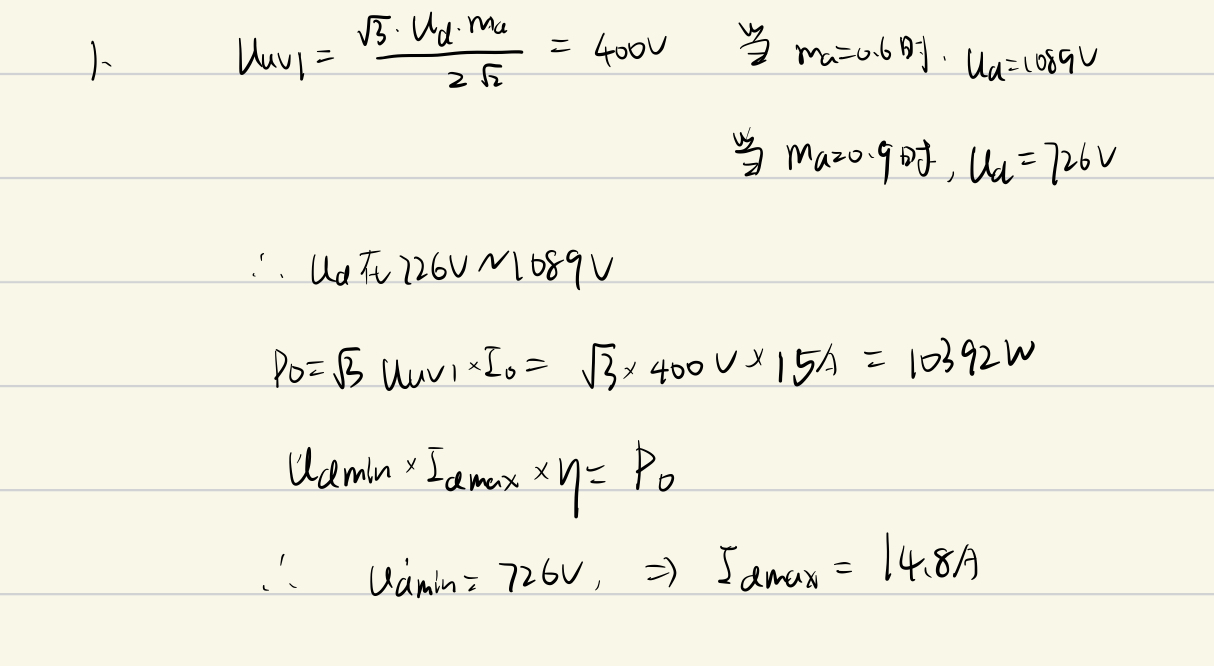 1. Uuv1 = √3·Ud·ma / 2√2 = 400V 当 ma=0.6时. Ud=1089V
当 ma=0.9时, Ud=726V
∴ Ud在726V~1089V
Po=√3 Uuv1×Io= √3×400V×15A = 10392W
Udmin×Idmax×η= Po
∴ Udmin= 726V, ⇒ Idmax = 14.8A